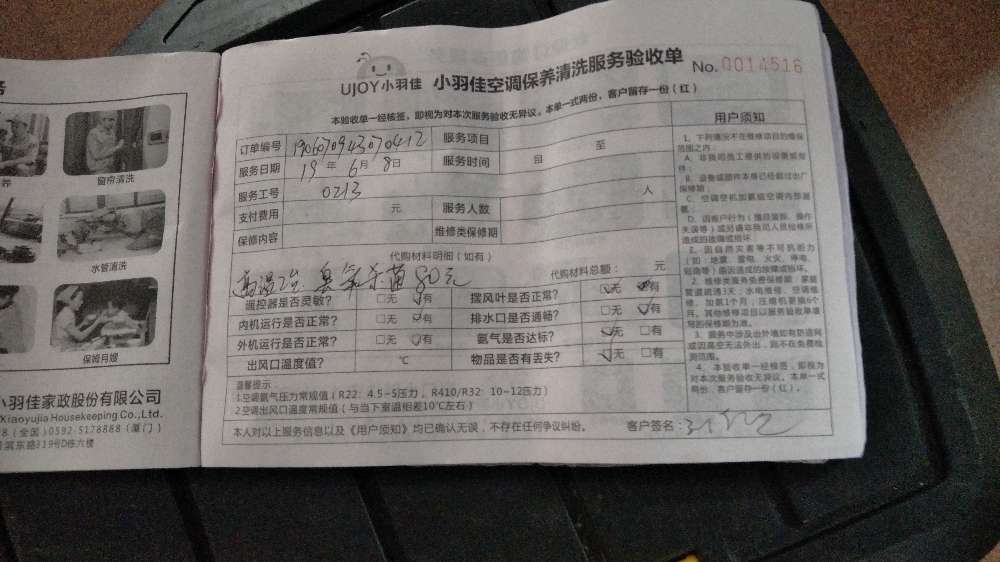 务
养
窗帘清洗
水管清洗
保姆月嫂
小羽佳家政股份有限公司
Xiaoyujia Housekeeping Co.,Ltd.
8（全国）0592-5178888（厦门）
滨东路319号D栋六楼
UJOY小羽佳
小羽佳空调保养清洗服务验收单
No. 0014516
本验收单一经核签，即视为对本次服务验收无异议。本单一式两份，客户留存一份（红）
订单编号 1906070943070412 服务项目
服务日期 19 年 6 月 8 日 服务时间 自 至
服务工号 0213 人
支付费用 元 服务人数
保修内容 维修类保修期
代购材料明细（如有） 代购材料总额： 元
高温 臭氧杀菌 80元
遥控器是否灵敏？ □无 □有 摆风叶是否正常？ □无 □有
内机运行是否正常？ □无 □有 排水口是否通畅？ □无 □有
外机运行是否正常？ □无 □有 氨气是否达标？ □无 □有
出风口温度值？ ℃ 物品是否有丢失？ □无 □有
温馨提示：
1.空调氨气压力常规值（R22：4.5-5压力，R410/R32：10-12压力）
2.空调出风口温度常规值（与当下室温相差10℃左右）
本人对以上服务信息以及《用户须知》均已确认无误，不存在任何争议纠纷。 客户签名：
用户须知
1、下列情况不在维修项目的维保
范围之内：
A、非我司员工提供的设备或部
件；
B、设备或部件本身已经超过出厂
保修期；
C、空调空机加氨或空调内部漏
氨；
D、因客户行为（擅自装拆、操作
失误等）或另请非我司人员检修所
造成的故障或损坏。
2、因自然灾害等不可抗拒力
（如：地震、雷电、火灾、停电、
短路等）原因造成的故障或损坏。
2、维修类服务免费保修期：家庭
管道疏通3天；水电维修、空调维
修、加氨1个月；压缩机更换6个
月。其他维修项目以服务验收单填
写的保修期为准。
3、服务中涉及出外墙如有防盗网
或因高空无法外出，则不在免费检
测范围。
4、本验收单一经核签，即视为
对本次服务验收无异议。本单一式
两份，客户留存一份（红）。